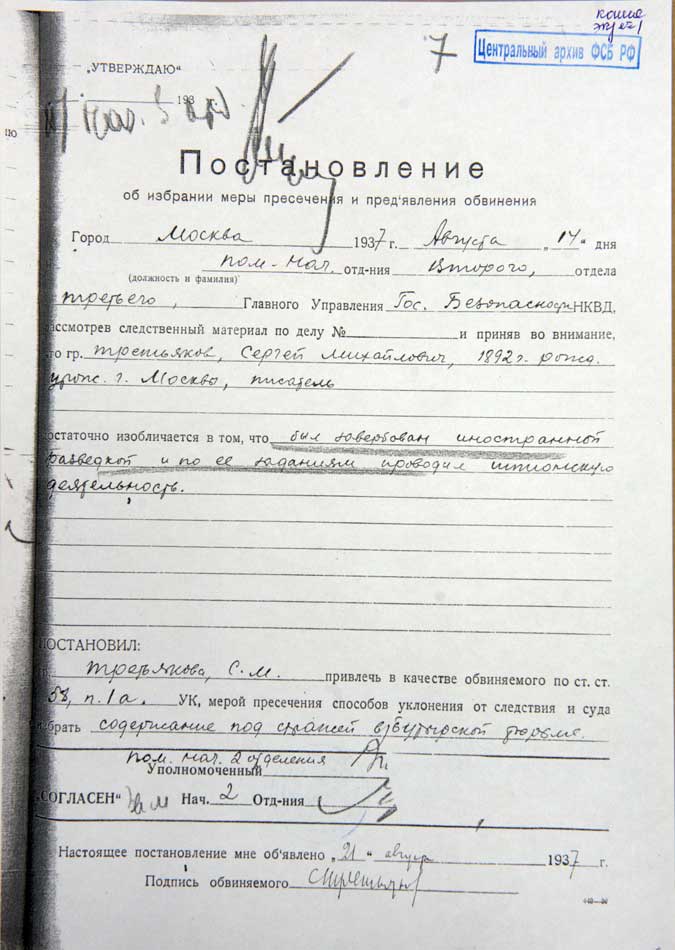 копия
экз №1
7
Центральный архив ФСБ РФ
„УТВЕРЖДАЮ“
193
Постановление
об избрании меры пресечения и пред'явления обвинения
Город Москва 1937 г. Августа „14“ дня
пом. нач. отд-ния Второго, отдела
(должность и фамилия)
третьего, Главного Управления Гос. Безопасности НКВД,
рассмотрев следственный материал по делу № и приняв во внимание,
то гр. Третьяков, Сергей Михайлович, 1892 г. рожд.
г. Москвы, писатель
достаточно изобличается в том, что был завербован иностранной
разведкой и по ее заданиям проводил шпионскую
деятельность.
ПОСТАНОВИЛ:
Третьякова, С. М. привлечь в качестве обвиняемого по ст. ст.
58, п. 1а. УК, мерой пресечения способов уклонения от следствия и суда
избрать содержание под стражей в Бутырской тюрьме.
пом. нач. 2 отделения
Уполномоченный
„СОГЛАСЕН“ Зам Нач. 2 Отд-ния
Настоящее постановление мне об'явлено „21“ август 1937 г.
Подпись обвиняемого СТретьяков